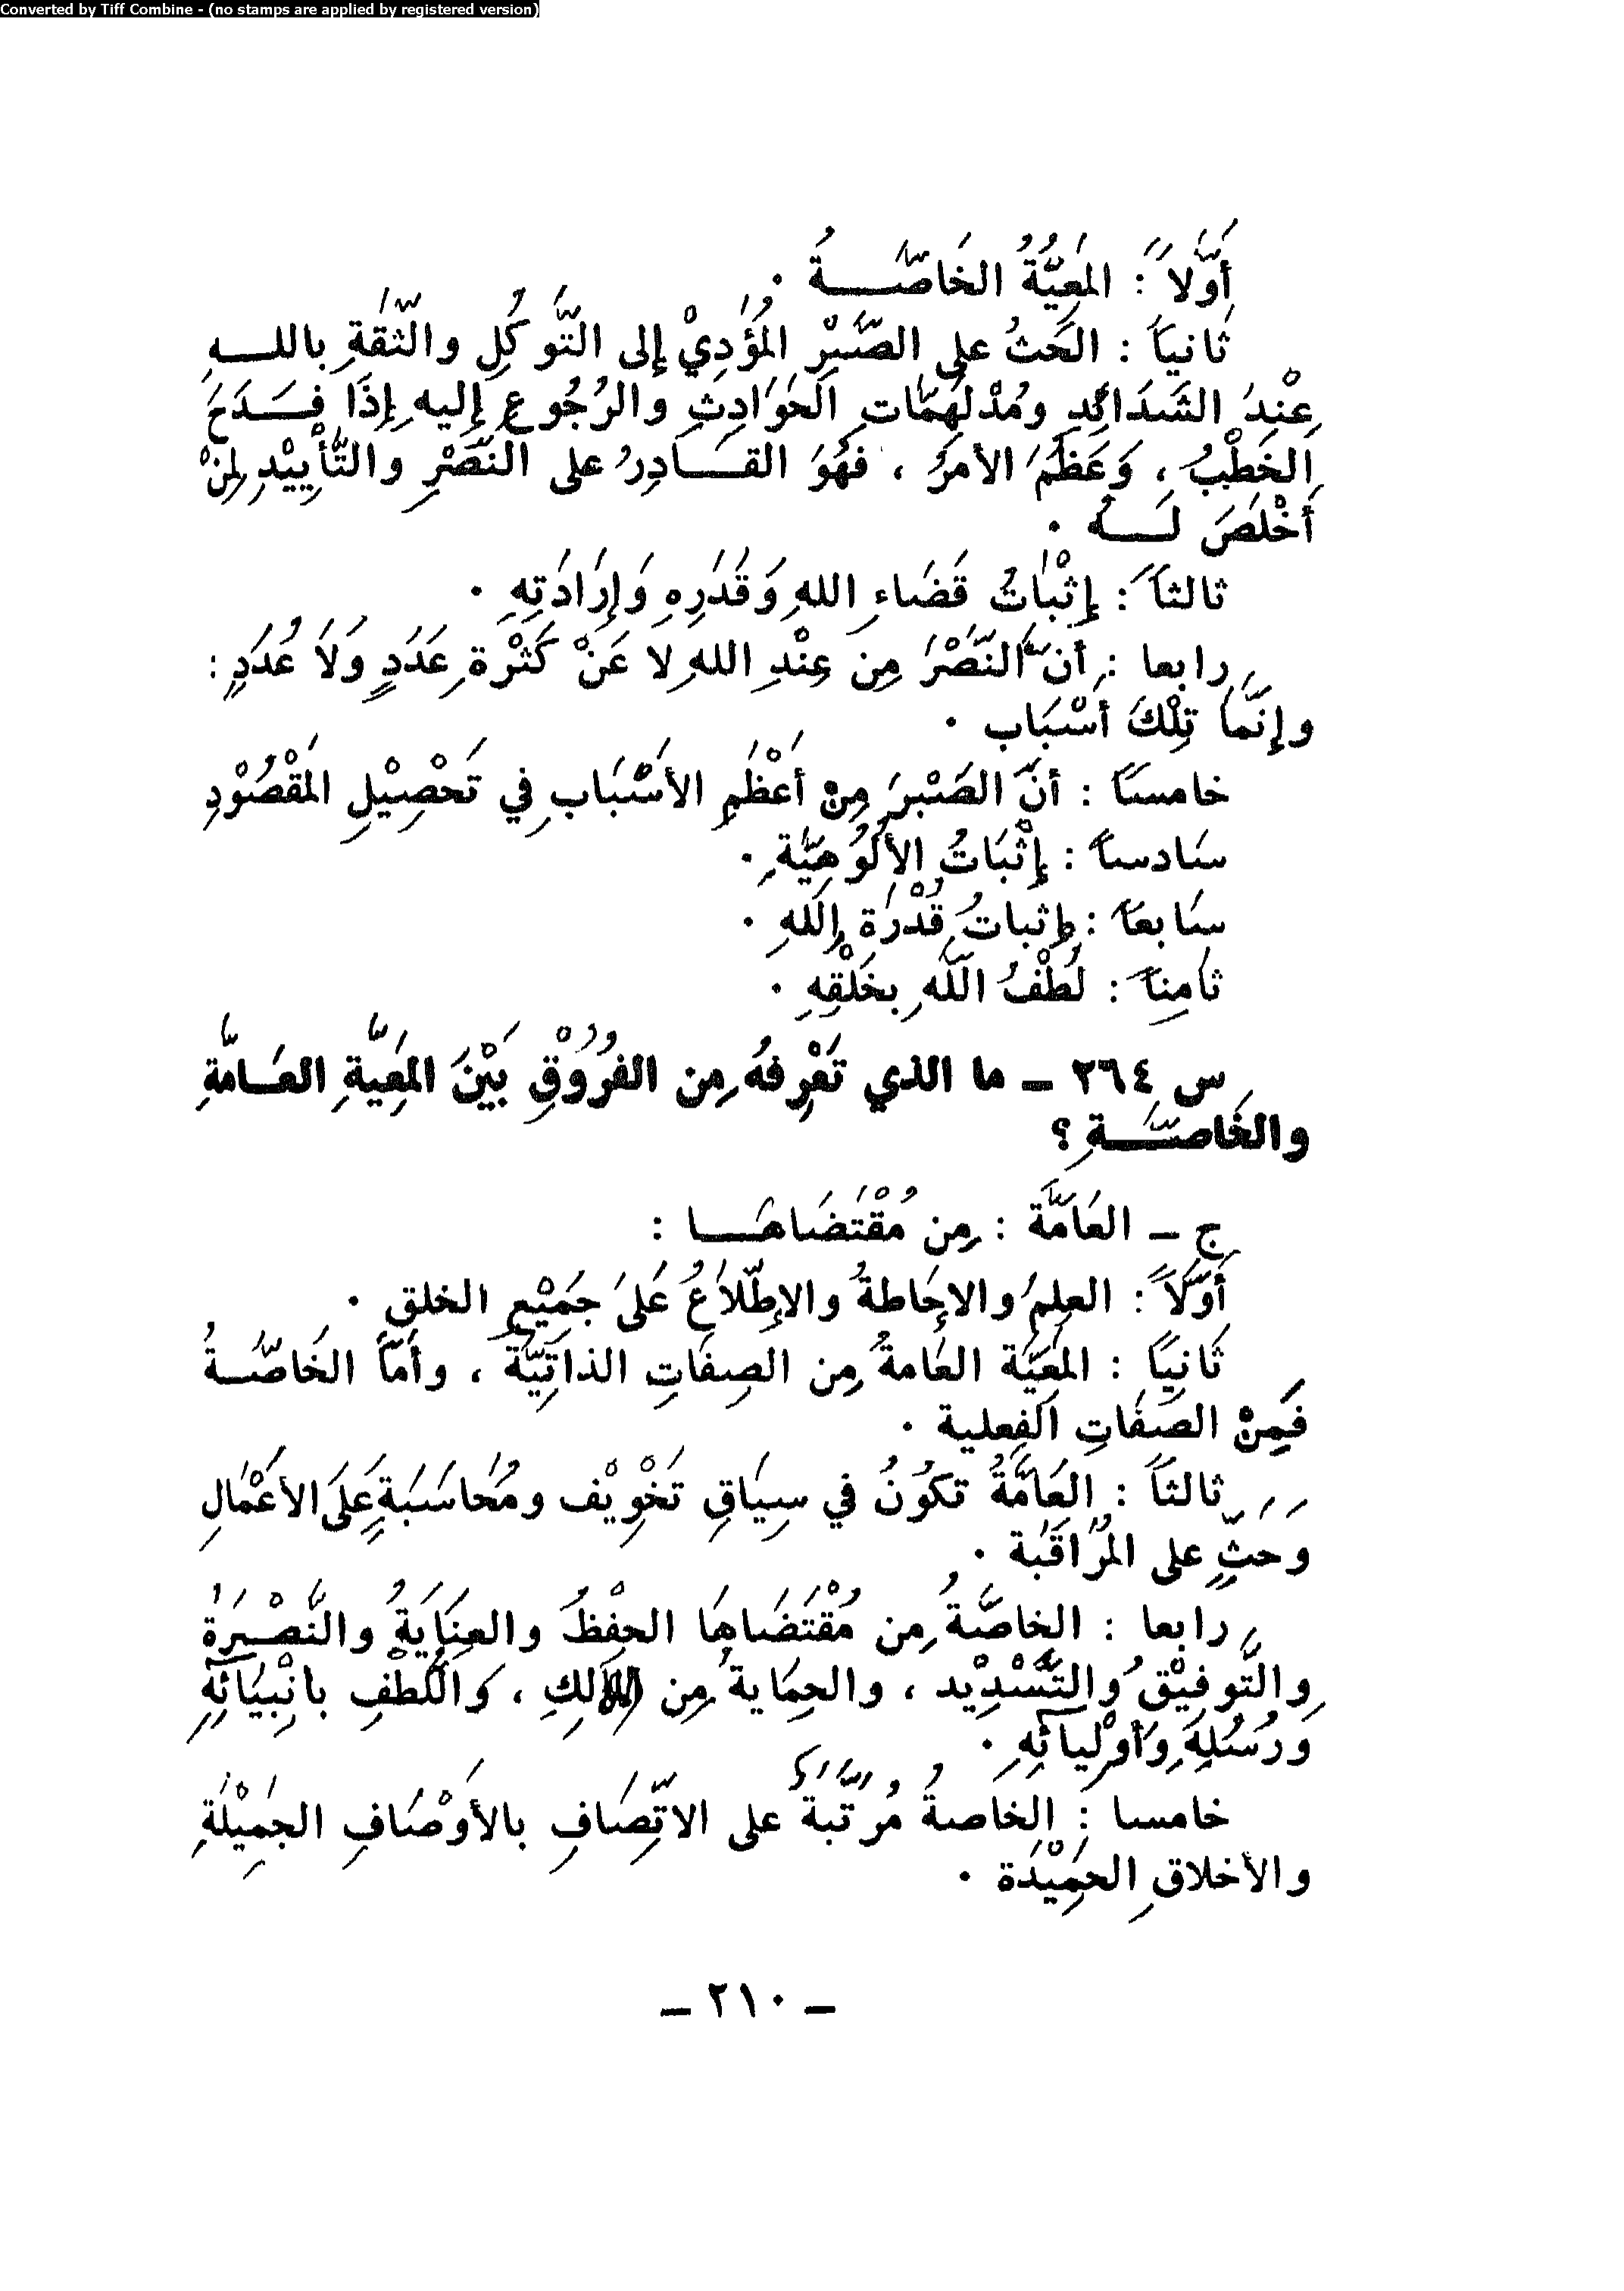 Converted by Tiff Combine - (no stamps are applied by registered version)
أَوَّلاً : المَعِيَّةُ الخَاصَّــــةُ .
ثَانِياً : الحَثُ على الصَّبْرِ المُؤَدِيْ إلى التَّوكُلِ والثّقَةِ باللــهِ
عِنْدَ الشَدَائِدِ ومُدْلَهِمَّاتِ الحَوَادِثِ والرُجُوعِ إليهِ إذَا فَــدَحَ
الخَطْبُ ، وَعَظُمَ الأمرُ ، فَهُوَ القَــادِرُ على النَصْرِ والتَّأْيِيْدِ لِمَنْ
أَخْلَصَ لَــهُ .
ثالثاً : إثْبَاتُ قَضَاءِ اللهِ وَقَدَرِهِ وَإرَادَتِهِ .
رابعا : أنَّ النَّصْرَ مِن عِنْدِ اللهِ لا عَنْ كَثْرَةِ عَدَدٍ وَلَا عُدَدٍ :
وإنَّمَا تِلْكَ أسْبَاب .
خامساً : أنَّ الصَبْرَ مِنْ أعْظَمِ الأسْبَابِ في تَحْصِيْلِ المَقْصُوْدِ
سَادساً : إثْبَاتُ الأُلُوْهِيَّةِ .
سَابعاً : إثباتُ قُدْرَةِ اللهِ .
ثَامِناً : لُطْفُ اللَّهِ بخَلْقِهِ .
س ٢٦٤ ــ ما الذي تَعْرِفهُ مِن الفُرُوْقِ بَيْنَ المَعِيَّةِ العَــامَّةِ
والخَاصَّــــةِ ؟
ج ــ العَامَّة : مِن مُقْتَضَاهَــا :
أوَّلاً : العِلمُ والإحَاطةُ والإطّلاعُ عَلَى جَمِيْعِ الخلق .
ثَانِيًا : المَعِيَّة العَامةُ مِن الصِفَاتِ الذاتِيَّة ، وأمَّا الخَاصَّــةُ
فَمِنْ الصَفَاتِ الفِعلية .
ثالثاً : العَامَّةُ تكُوْنُ في سِيَاقِ تَخْوِيْف ومُحَاسَبَةٍ عَلَى الأعْمَالِ
وَحَثٍّ على المُرَاقَبَة .
رابعا : الخاصَّةُ مِن مُقْتَضَاهَا الحِفْظُ والعِنَايَةُ والنُّصْرَةُ
والتَّوفِيْقُ والتَّسْدِيْد ، والحِمَايةُ مِن المهَالِكِ ، وَاللُّطْفِ بأنْبِيَائِهِ
وَرُسُلِهِ وَأوْلِيائِهِ .
خامسا : الخاصةُ مُرَتَّبَةٌ على الاتِّصَافِ بالأوْصَافِ الجَمِيْلَةِ
والأخلاقِ الحَمِيْدَة .
ــ ٢١٠ ــ